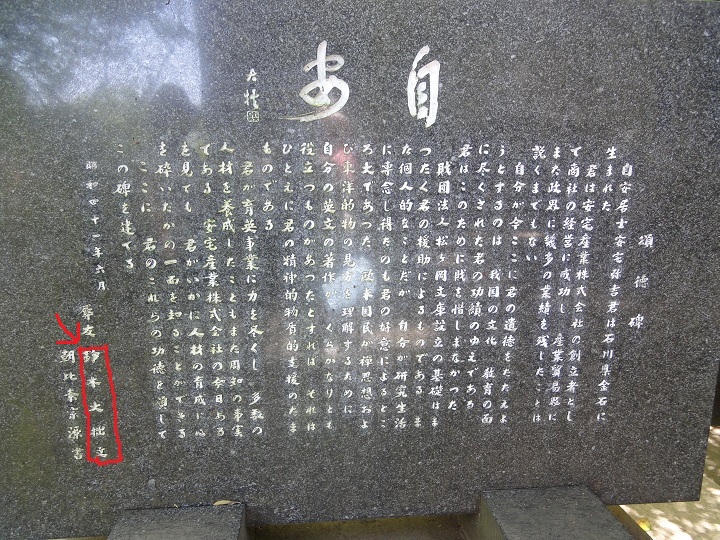 自安
大拙
頌徳碑
自安居士安宅弥吉君は石川県金石に
生まれた
君は安宅産業株式会社の創立者とし
て商社の経営に成功し 産業貿易界に
また政界に幾多の業績を残したことは
説くまでもない
自分が今ここに君の遺徳をたたえよ
うとするのは 我国の文化 教育の面
に尽くされた君の功績のゆえである
君はこのために財を惜しまなかった
財団法人松ヶ岡文庫設立の基礎はま
つたく君の援助によるものである ま
た個人的なことだが 自分が研究生活
に専念し得たのも君の好意によるとこ
ろ大であつた 欧米国民が禅思想およ
び東洋的物の見方を理解するために
自分の英文の著作がいくらかなりとも
役立つものがあつたとすれば それは
ひとえに君の精神的物質的支援のたま
ものである
君が育英事業に力を尽くし 多数の
人材を養成したこともまた周知の事実
である 安宅産業株式会社の今日ある
を見ても 君がいかに人材の育成に心
を砕いたかの一面を知ることができる
ここに 君のこれらの功徳を頌して
この碑を建てる
昭和四十一年六月
辱友 鈴木大拙文
朝比奈宗源書